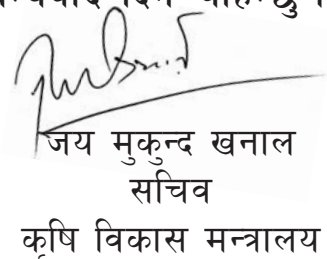 जय मुकुन्द खनाल
सचिव
कृषि विकास मन्त्रालय